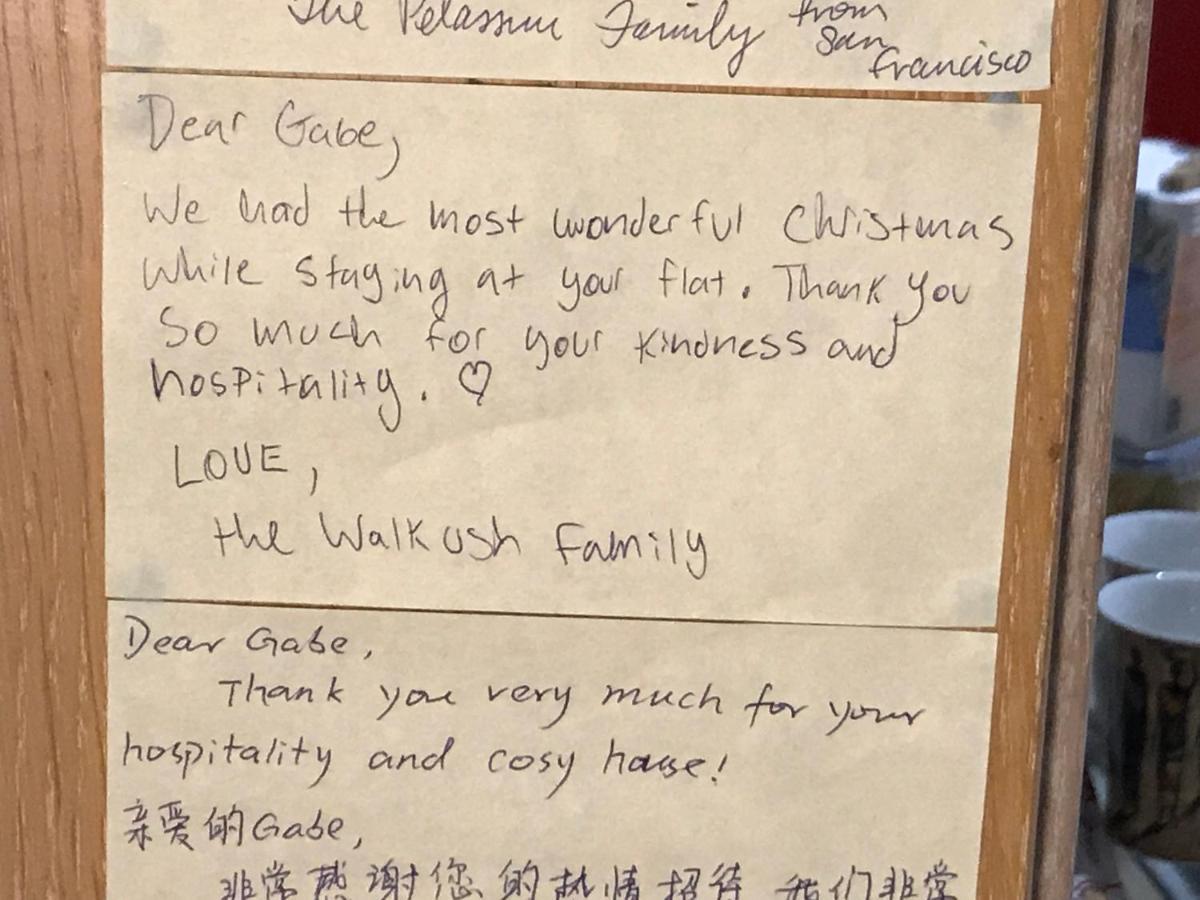 The Pelassur Family from
San
Francisco
Dear Gabe,
We had the most wonderful Christmas
while staying at your flat. Thank you
so much for your kindness and
hospitality. ♡
LOVE,
the Walkush Family
Dear Gabe,
Thank you very much for your
hospitality and cosy house!
亲爱的Gabe,
非常感谢您的热情招待 我们非常